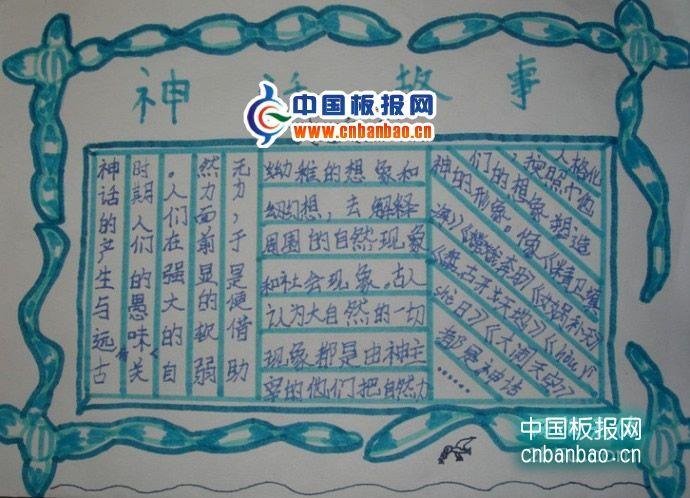 神话故事
中国板报网
www.cnbanbao.cn
神话的产生与远古
时期人们的愚味有关
。人们在强大的自
然力面前显的软弱
无力，于是便借助
幼稚的想象和
幻想，去解释
周围的自然现象
和社会现象。古人
认为大自然的一切
现象都是由神主
宰的他们把自然力
人格化
，按照
们的想象塑造
神的形象。像《精卫填
海》《嫦娥奔月》《女娲补天》
《盘古开天地》《hòu yì
shè日》《大闹天宫》
都是神话
……
中国板报网
cnbanbao.cn